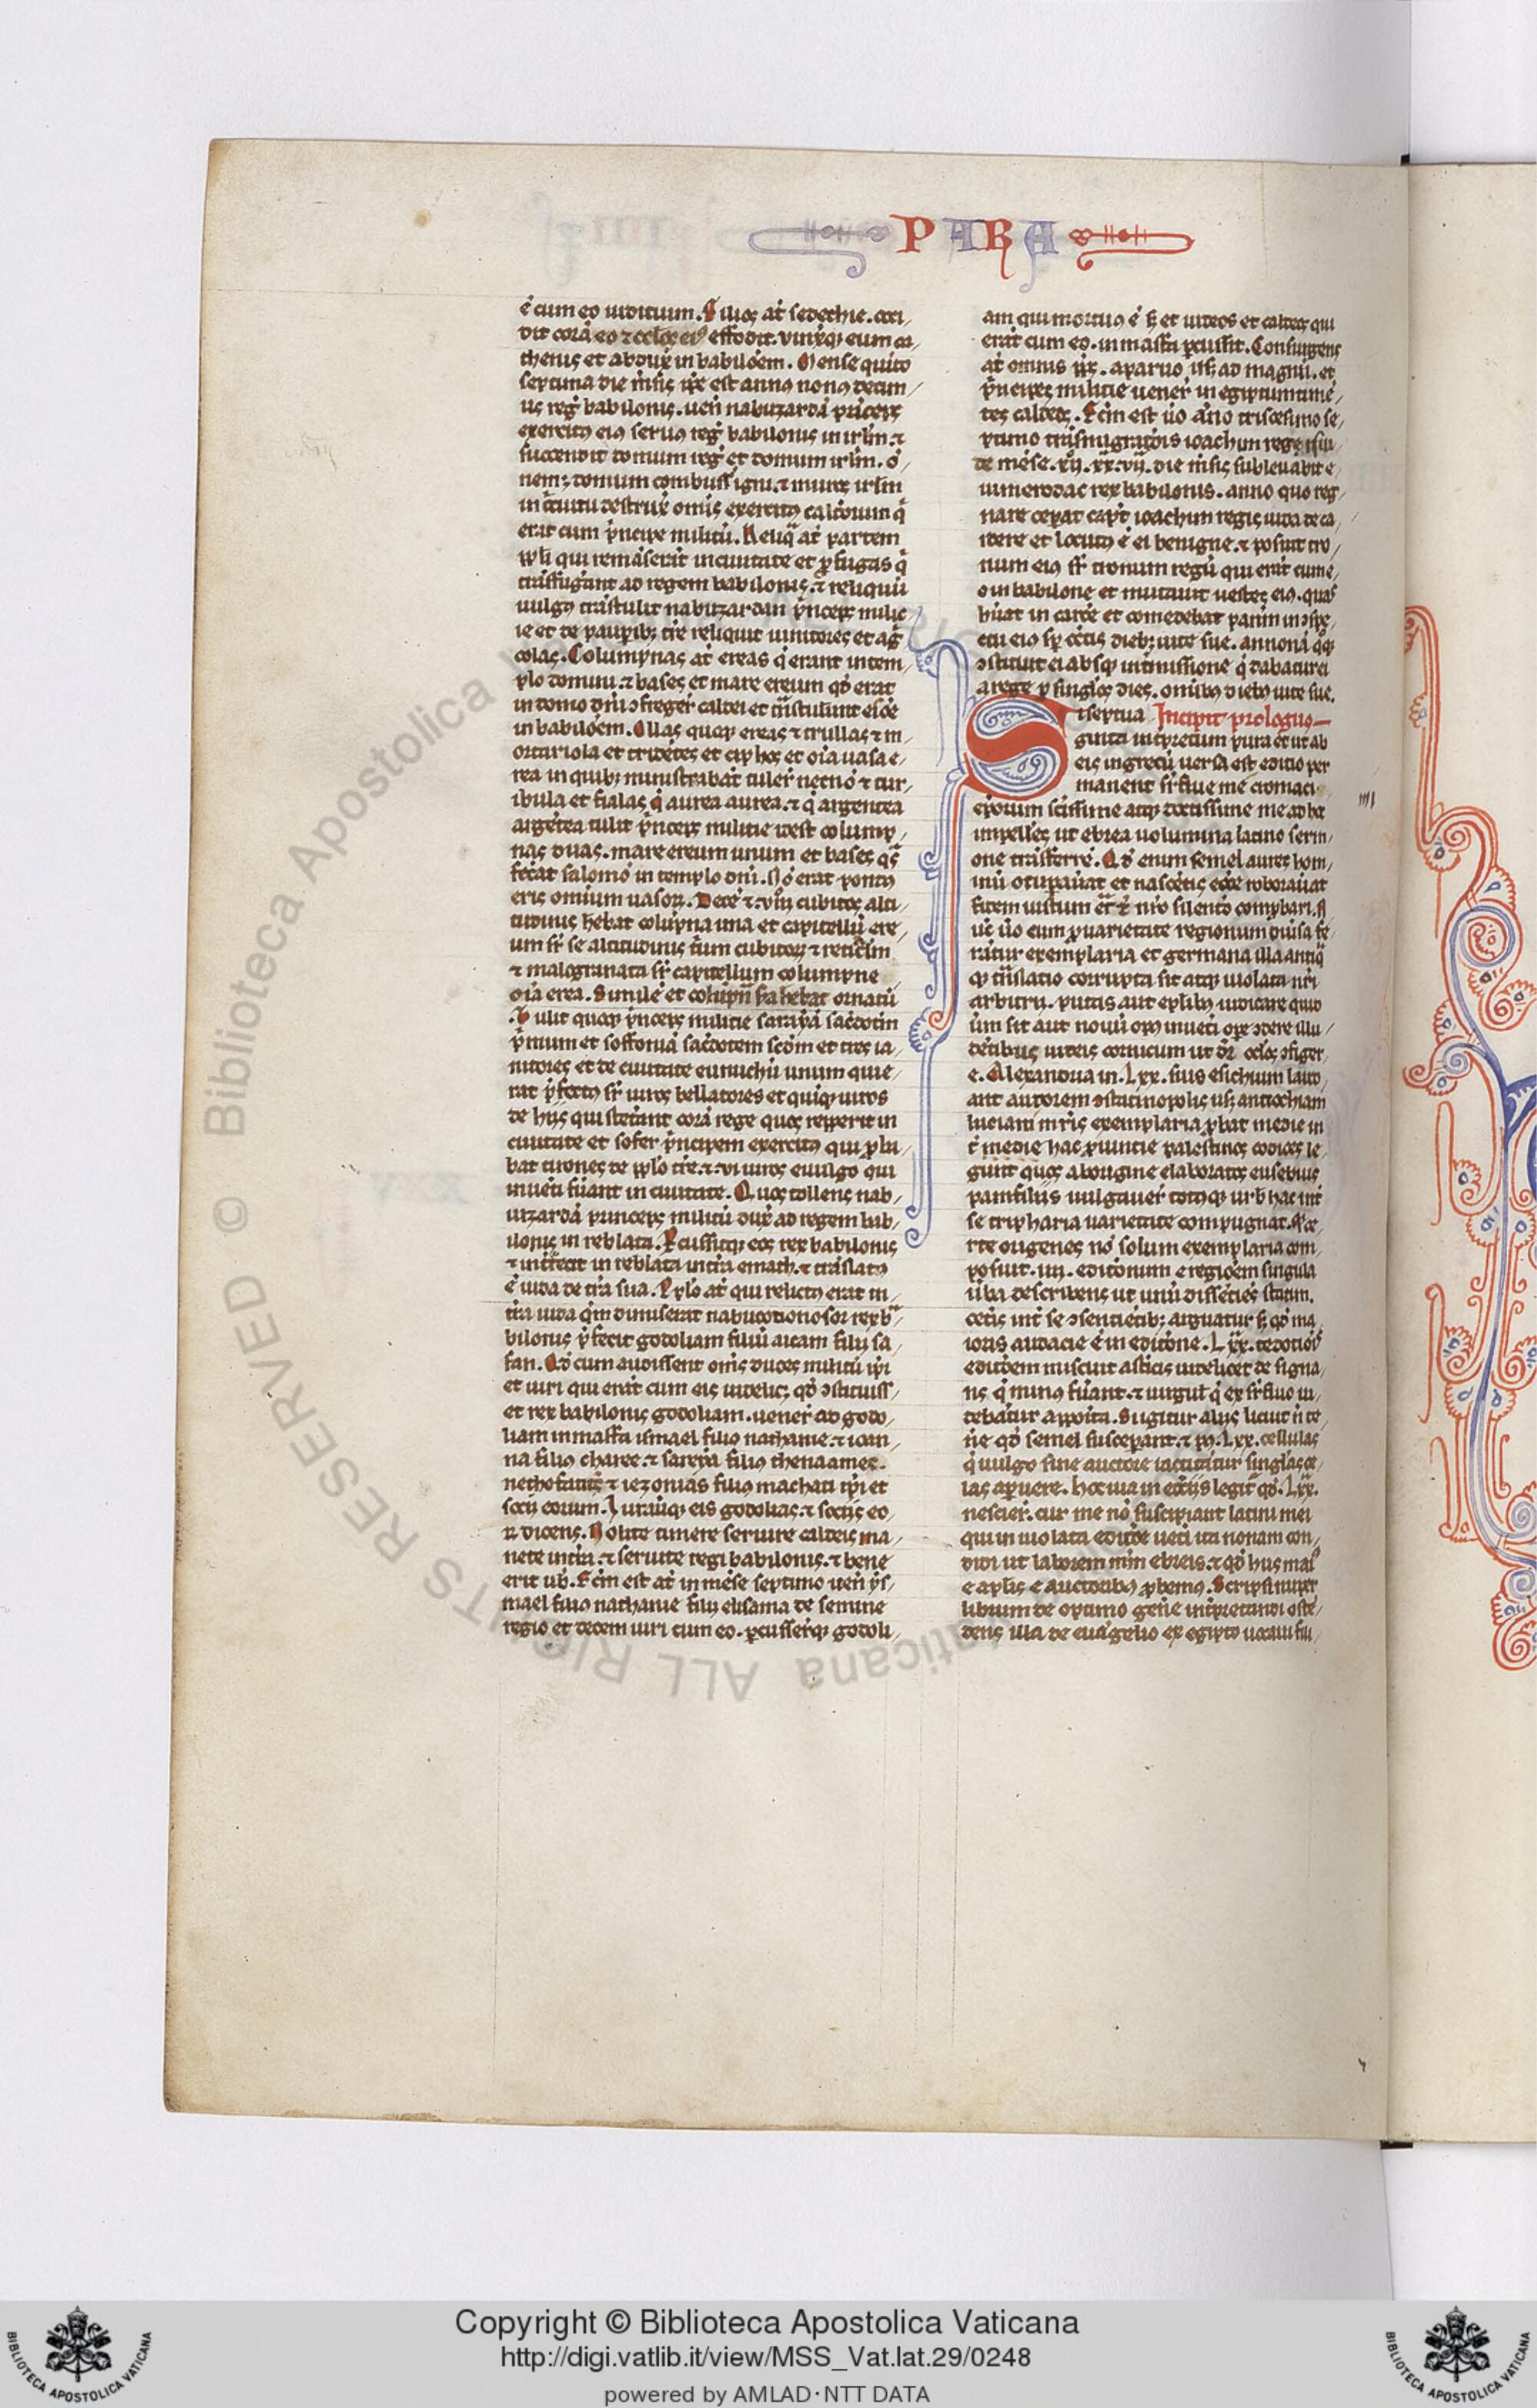 PARA
ē cum eo iudicium. Filios at̄ sedechie. occi
dit corā eo ⁊ oclos ei effodit. vinxq; eum ca
thenis et abdux in babilōem. Mense quīto
septima die mēsis ip̄e est annus nonus decim
us reḡ babilonis. uen̄ nabuzardā prīceps
exercitus eius seruus reḡ babilonis in irl̄m. ⁊
succendit domum reḡ et domum irl̄m. o
nemq; domum combussit igni. ⁊ muros irl̄m
in c̄cuitu destrux̄ omīs exercitus caldeorum q̄
erat cum p̄ncipe militū. Reliquā at̄ partem
pp̄li qui remāserāt in ciuitate et p̄fugas q̄
trāsfugānt ad regem babilonis. ⁊ reliquū
uulgus trāstulit nabuzardan p̄nceps milic
ie et de paupib; tr̄e reliquit uinitores et ag̃
colas. Columpnas at̄ ereas q̄ erant in tem
plo domini. ⁊ bases et mare ereum qd̄ erat
in domo dn̄i ɔfregēr caldei et trāstulerūt es oē
in babilōem. Ollas quoq; ereas ⁊ trullas ⁊ in
ortariola et tridētes et ciphos et oīa uasa e
rea in quib; ministrabāt tulēr necnō ⁊ tur
ibula et fialas q̄ aurea aurea. ⁊ q̄ argentea
argētea tulit p̄nceps militie idest colump
nas duas. mare ereum unum et bases q̄s
fecāt salomō in templo dn̄i. Nō erat pondus
eris omium uasor̄. Decē ⁊ viiij cubitos alti
tudinis hēbat colūpna una et capitellū ere
um sr̄ se altitudinis trium cubitor̄ ⁊ reticl̄m
⁊ malogranata sr̄ capitellum columpne
oīa erea. Simile et colūpn̄ sc̄da hebat ornatū
Tulit quoq; p̄nceps militie saraiā sacdotem
p̄mum et soffoniā sacdotem scd̄m et tres ia
nitores et de ciuitate eunuchū unum qui e
rat p̄fectus sr̄ uiros bellatores et quīq; uiros
de hijs qui stetānt corā rege quos repperit in
ciuitate et sofer p̄ncipem exercitus qui p̄ba
bat tirones de pp̄lo tr̄e. ⁊ vi uiros e uulgo qui
inuēti fūant in ciuitate. Quos tollens nab
uzardā princeps militū dux̄ ad regem bab
ilonis in reblata. Pcussitq; eos rex babilonis
⁊ int̄fecit in reblata in tr̄a emath. ⁊ trāslatus
ē iuda de tr̄a sua. Pp̄lo at̄ qui relictus erat in
tr̄a iuda q̄m dimiserat nabucodonosor rex ba
bilonis p̄fecit godoliam filiū aicam filij sa
fan. Qd̄ cum audissent om̄s duces militū ip̄i
et uiri qui erāt cum eis uidelic; qd̄ ɔstituiss
et rex babilonis godoliam. uenēr ad godo
liam in masfa ismael filius nathanie. ⁊ ioan
na filius charee. ⁊ saraya filius thenaamec.
nethofatite ⁊ iezonias filius machati ip̄i et
socij eorum. Iurauitq; eis godolias. ⁊ socijs eo
r̄ dicens. Nolite timere seruire caldeis ma
nete in tr̄a. ⁊ seruite regi babilonis. ⁊ bene
erit uob. Fcm̄ est at̄ in mēse septimo uen̄ ys
mael filius nathanie filij elisama de semine
regio et decem uiri cum eo. pcusserq; godoli
am qui mortuus ē s; et iudeos et caldeos qui
erāt cum eo. in masfa pcussit. Consurgens
at̄ omnis pp̄s. a paruo us; ad magnū. et
p̄ncipes militie uenēr in egiptum timē
tes caldeos. Fcm̄ est ūo āno tricesimo se
ptimo trāsmigratōis ioachim regis iu
de mēse. xij. xx. vij. die mēsis subleuabit e
uimerodac rex babilonis. anno quo reg
nare cepat capt ioachim regis iuda de ca
rcere et locutus ē ei benigne. ⁊ posuit tro
num eius sr̄ tronum regū qui erāt cum e
o in babilone et mutauit uestes eius. quas
hūat in carcē et comedebat panem in ɔspe
ctu eius sp̄ cūctis dieb; uite sue. annonā qoq;
ɔstituit ei absq; int̄missione q̄ dabatur ei
a rege p singlos dies. omībus diebus uite sue.
Si septua Incipit prologus
ginta int̄pretum pura et ut ab
eis in grecū uersa est editio per
manent sr̄ flue me cromaci
IIII
eporum sc̄issime atq; doctissime me ad hec
impelles ut ebrea uolumina latino serm
one trāsferre. Qd̄ enim semel aures hom
inū occupauāt et nascētis ecce roborauāt
fidem iustum erat ⁊ nr̄o silentio compbari. N
uc̄ ūo cum p uarietate regionum diūsa fe
rātur exemplaria et germana illa antiq̄
q; trāslatio corrupta sit atq; uiolata nr̄i
arbitrij. putas aut e plib; iudicare quid
ūm sit aut nouū opus in ueti ope ɔdere illu
dētibus iudeis cornicum ut dr̄ oclos ɔfiger
e. Alexandria in. Lxx. suis esichium laud
at autorem ɔstātinopolis us; antiochiam
luciani mr̄is exemplaria pbat medie in
t̄ medie has puintie palestinos codices le
gunt quos ab origine elaboratos eusebius
pamfilus uulgauēr totusq; urb hac int̄
se tripharia uarietate compugnat. Et ce
rte origenes nō solum exemplaria com
posuit. iiij. editionum e regiōem singula
ūba describens ut unū dissētiēs statim.
cet̄is int̄ se ɔsentiētib; arguatur s; qd̄ ma
ioris audacie ē in editōne. Lxx. teodotiōs
editōem miscuit astīcis uidelicet de signa
ns q̄ minus fūant. ⁊ uirgul q̄ ex sr̄fluo ui
debātur apposita. Sigitur alijs licuit n̄ te
n̄e qd̄ semel suscepant. ⁊ p; Lxx. cellulas
q̄ uulgo sine auctore iactātur singlas ce
las apuere. hoc iua in ecc̄ijs legit̄ qd̄. Lxx.
nescier. cur me nō suscipiant latini mei
qui in uiolata editōe ueti ita nouam con
didi ut laborem mm̄ ebreis. ⁊ qd̄ hijs mai
e aplis e auctoribus pbemus. Scripsi nuper
librum de optimo gen̄e int̄pretandi ostē
dens illa de euāgelio ex egipto uocaui fili
Copyright © Biblioteca Apostolica Vaticana
http://digi.vatlib.it/view/MSS_Vat.lat.29/0248
powered by AMLAD·NTT DATA
BIBLIOTECA APOSTOLICA VATICANA
BIBLIOTECA APOSTOLICA VATICANA
© Biblioteca Apostolica Vaticana ALL RIGHTS RESERVED